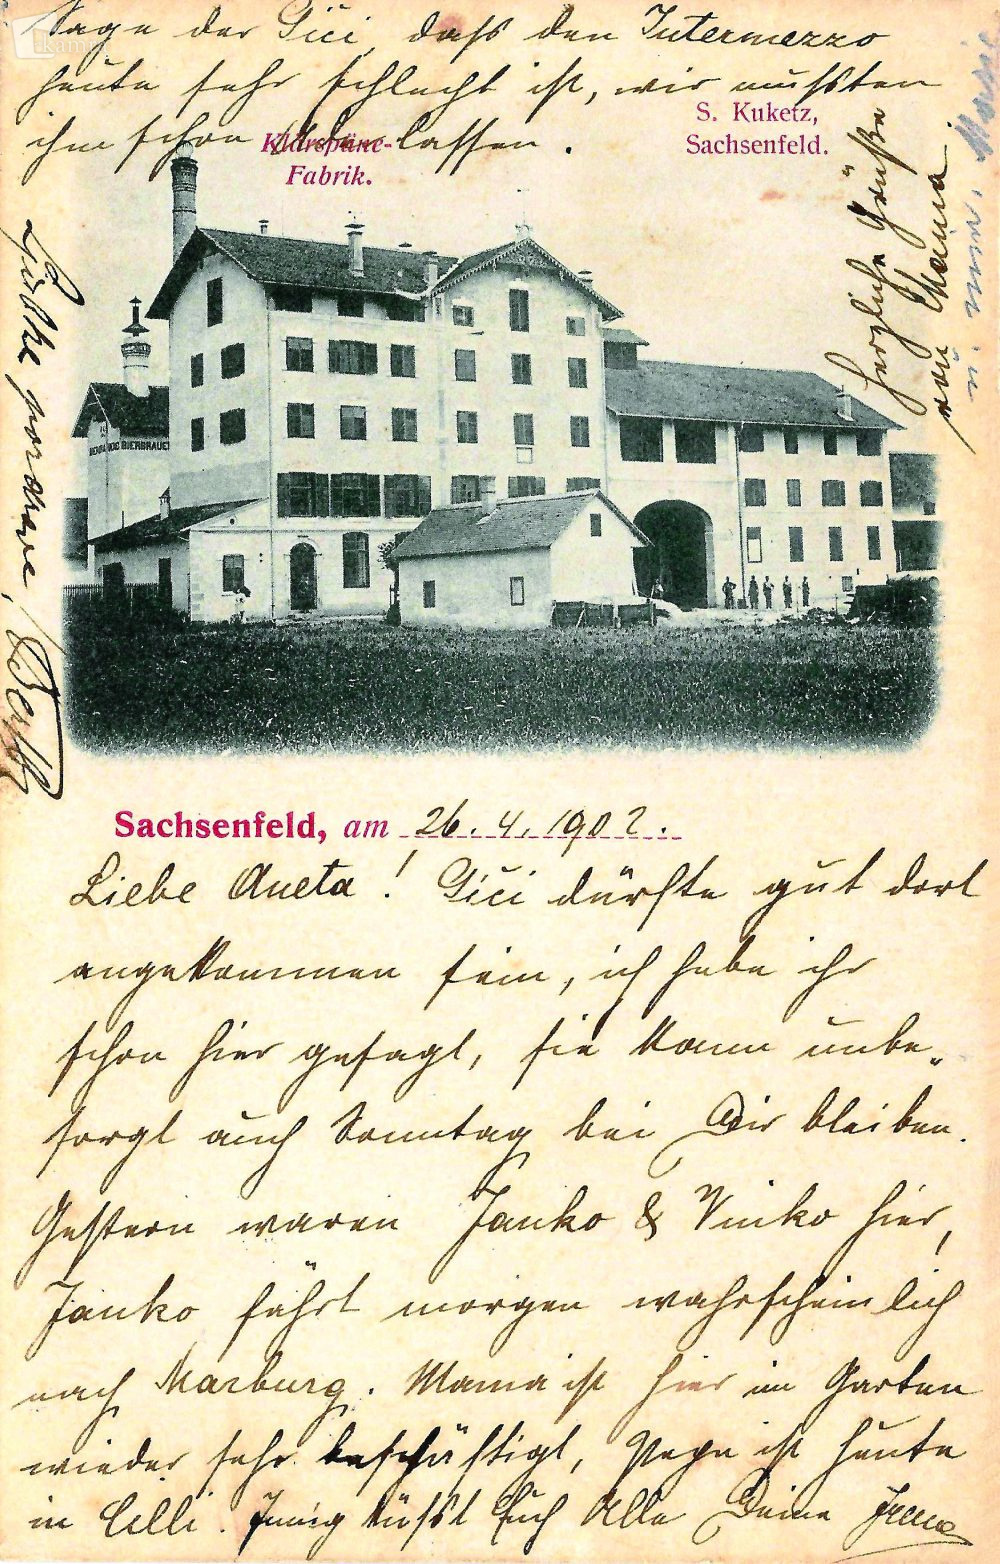 Sage der Gići, daß den Intermezzo
heute sehr schlecht ist, wir mußten
ihm schon lassen.
Klärspäne-
Fabrik.
S. Kuketz,
Sachsenfeld.
Herzliche Grüße
von Mama
BIERBRAUE
Sachsenfeld, am 26. 4. 1902.
Liebe Aneta! Gići dürfte gut dort
angekommen sein, ich habe ihr
schon hier gesagt, sie kann unbe-
sorgt auch Sonntag bei Dir bleiben.
Gestern waren Janko & Vinko hier,
Janko fährt morgen wahrscheinlich
nach Marburg. Mama ist hier im Garten
wieder sehr beschäftigt, Pepa ist heute
in Cilli. Innig küßt Euch Alle Deine Irma